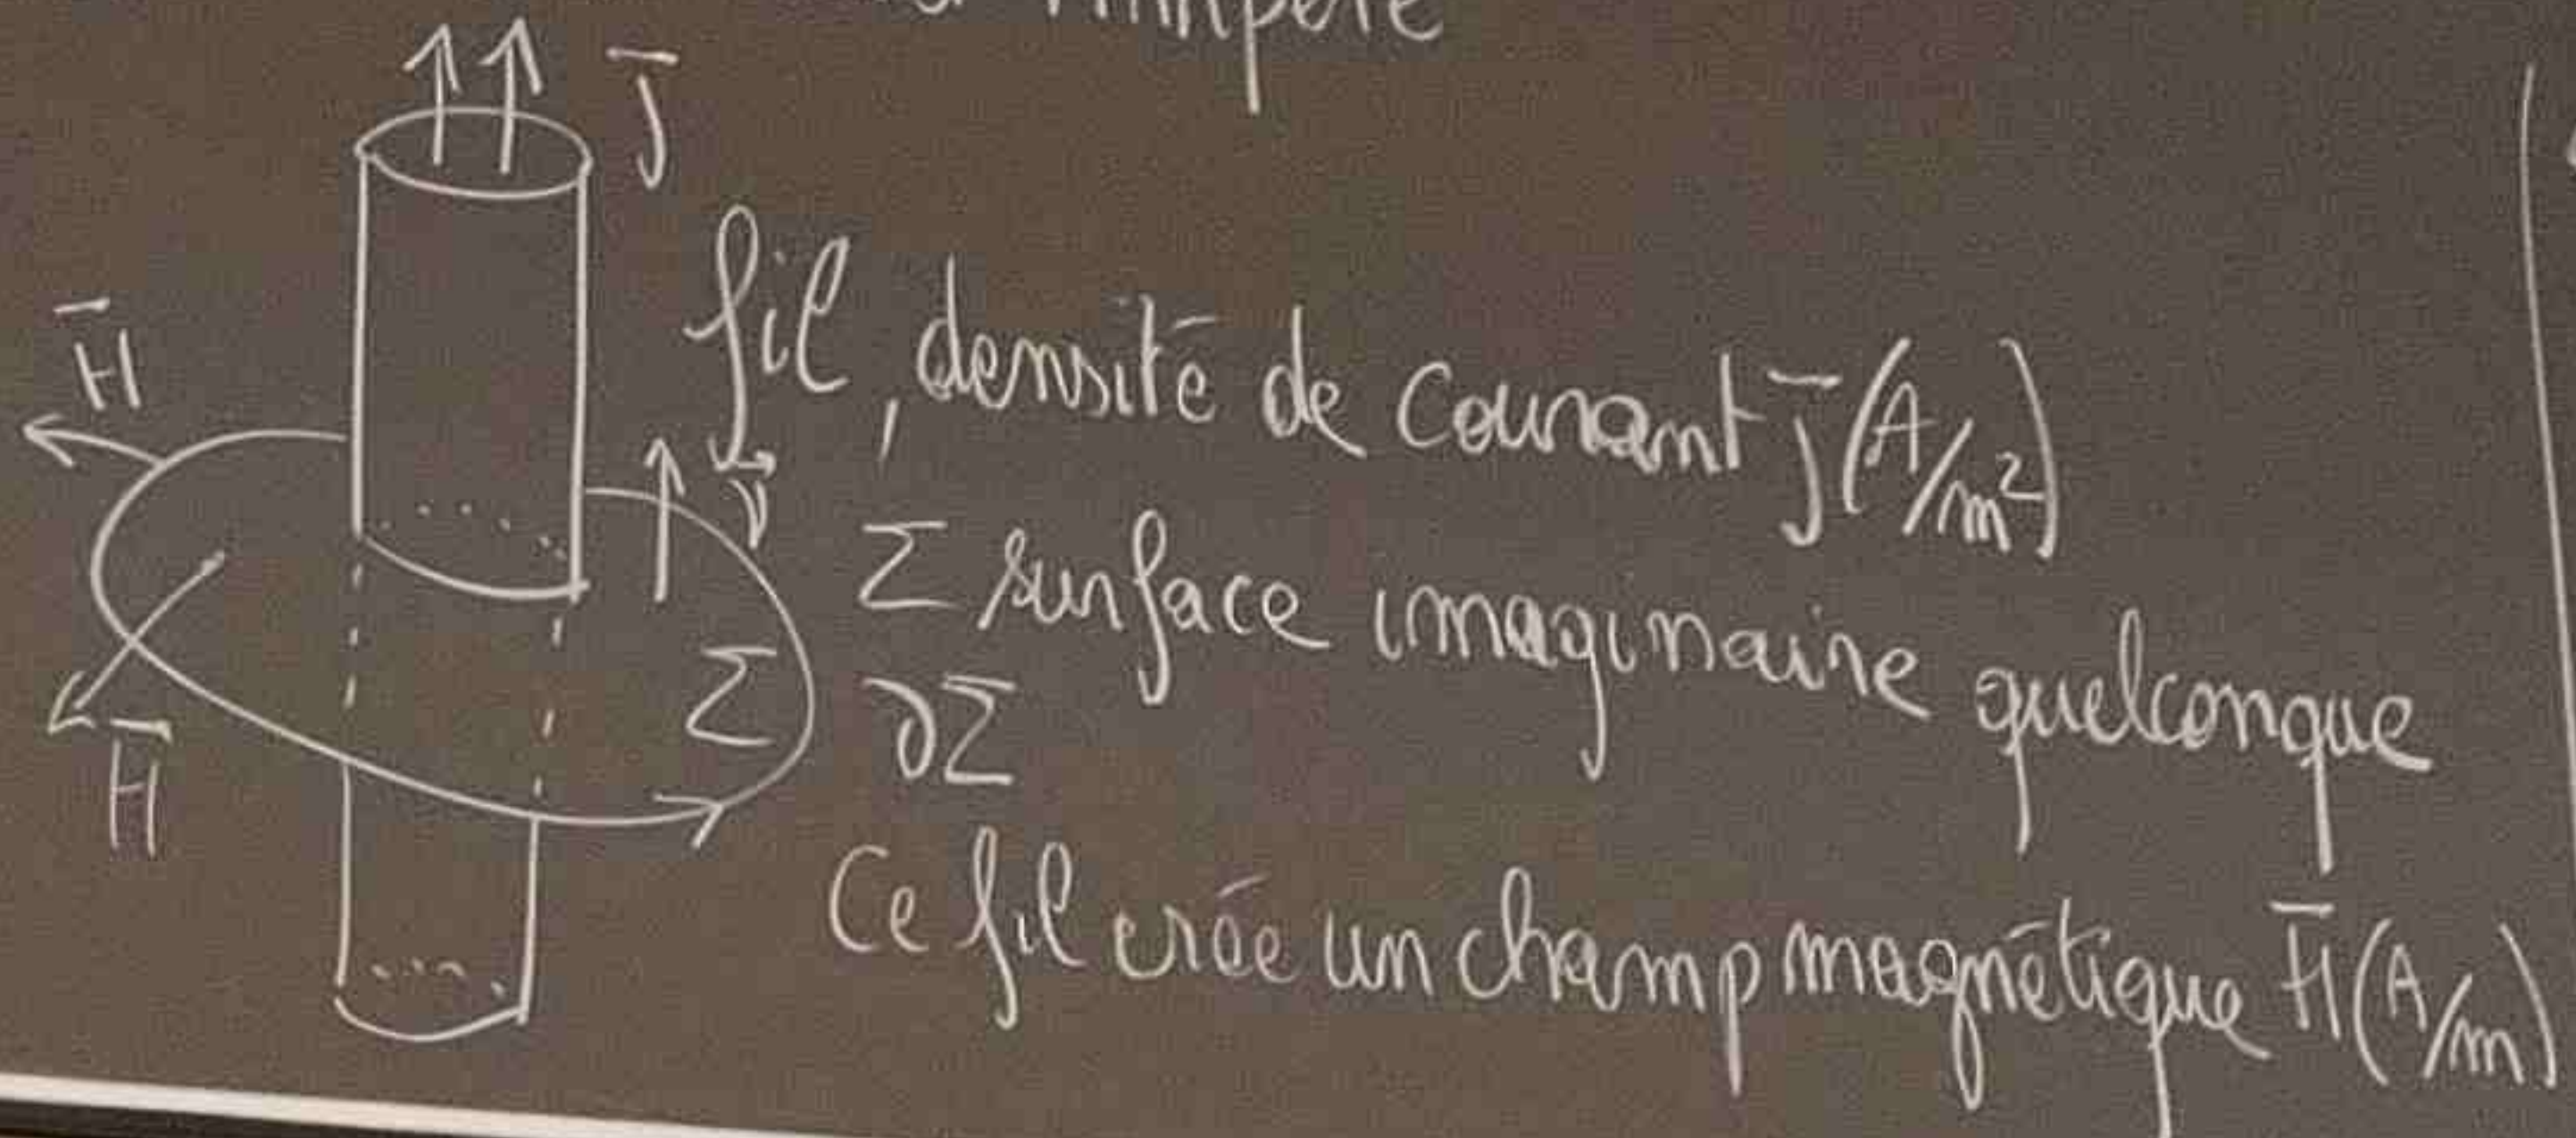 Ampère
J̅
H̅
fil, densité de courant J̅ (A/m²)
ν⃗
Σ surface imaginaire quelconque
Σ
∂Σ
H̅
Ce fil crée un champ magnétique H̅ (A/m)